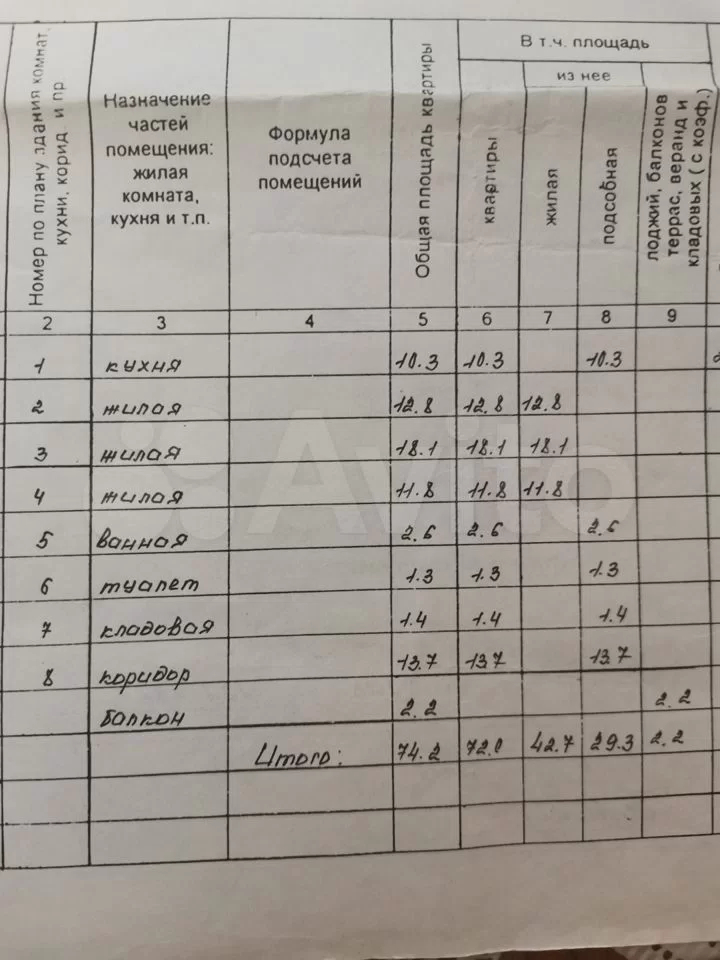 Номер по плану здания комнат,
кухни, корид и пр
Назначение
частей
помещения:
жилая
комната,
кухня и т.п.
Формула
подсчета
помещений
Общая площадь квартиры
В т.ч. площадь
из нее
квартиры
жилая
подсобная
лоджий, балконов
террас, веранд и
кладовых ( с коэф.)
2 3 4 5 6 7 8 9
1 кухня 10.3 10.3 10.3
2 жилая 12.8 12.8 12.8
3 жилая 18.1 18.1 18.1
4 жилая 11.8 11.8 11.8
5 ванная 2.6 2.6 2.6
6 туалет 1.3 1.3 1.3
7 кладовая 1.4 1.4 1.4
8 коридор 13.7 13.7 13.7
балкон 2.2 2.2
Итого: 74.2 72.0 42.7 29.3 2.2
Avito